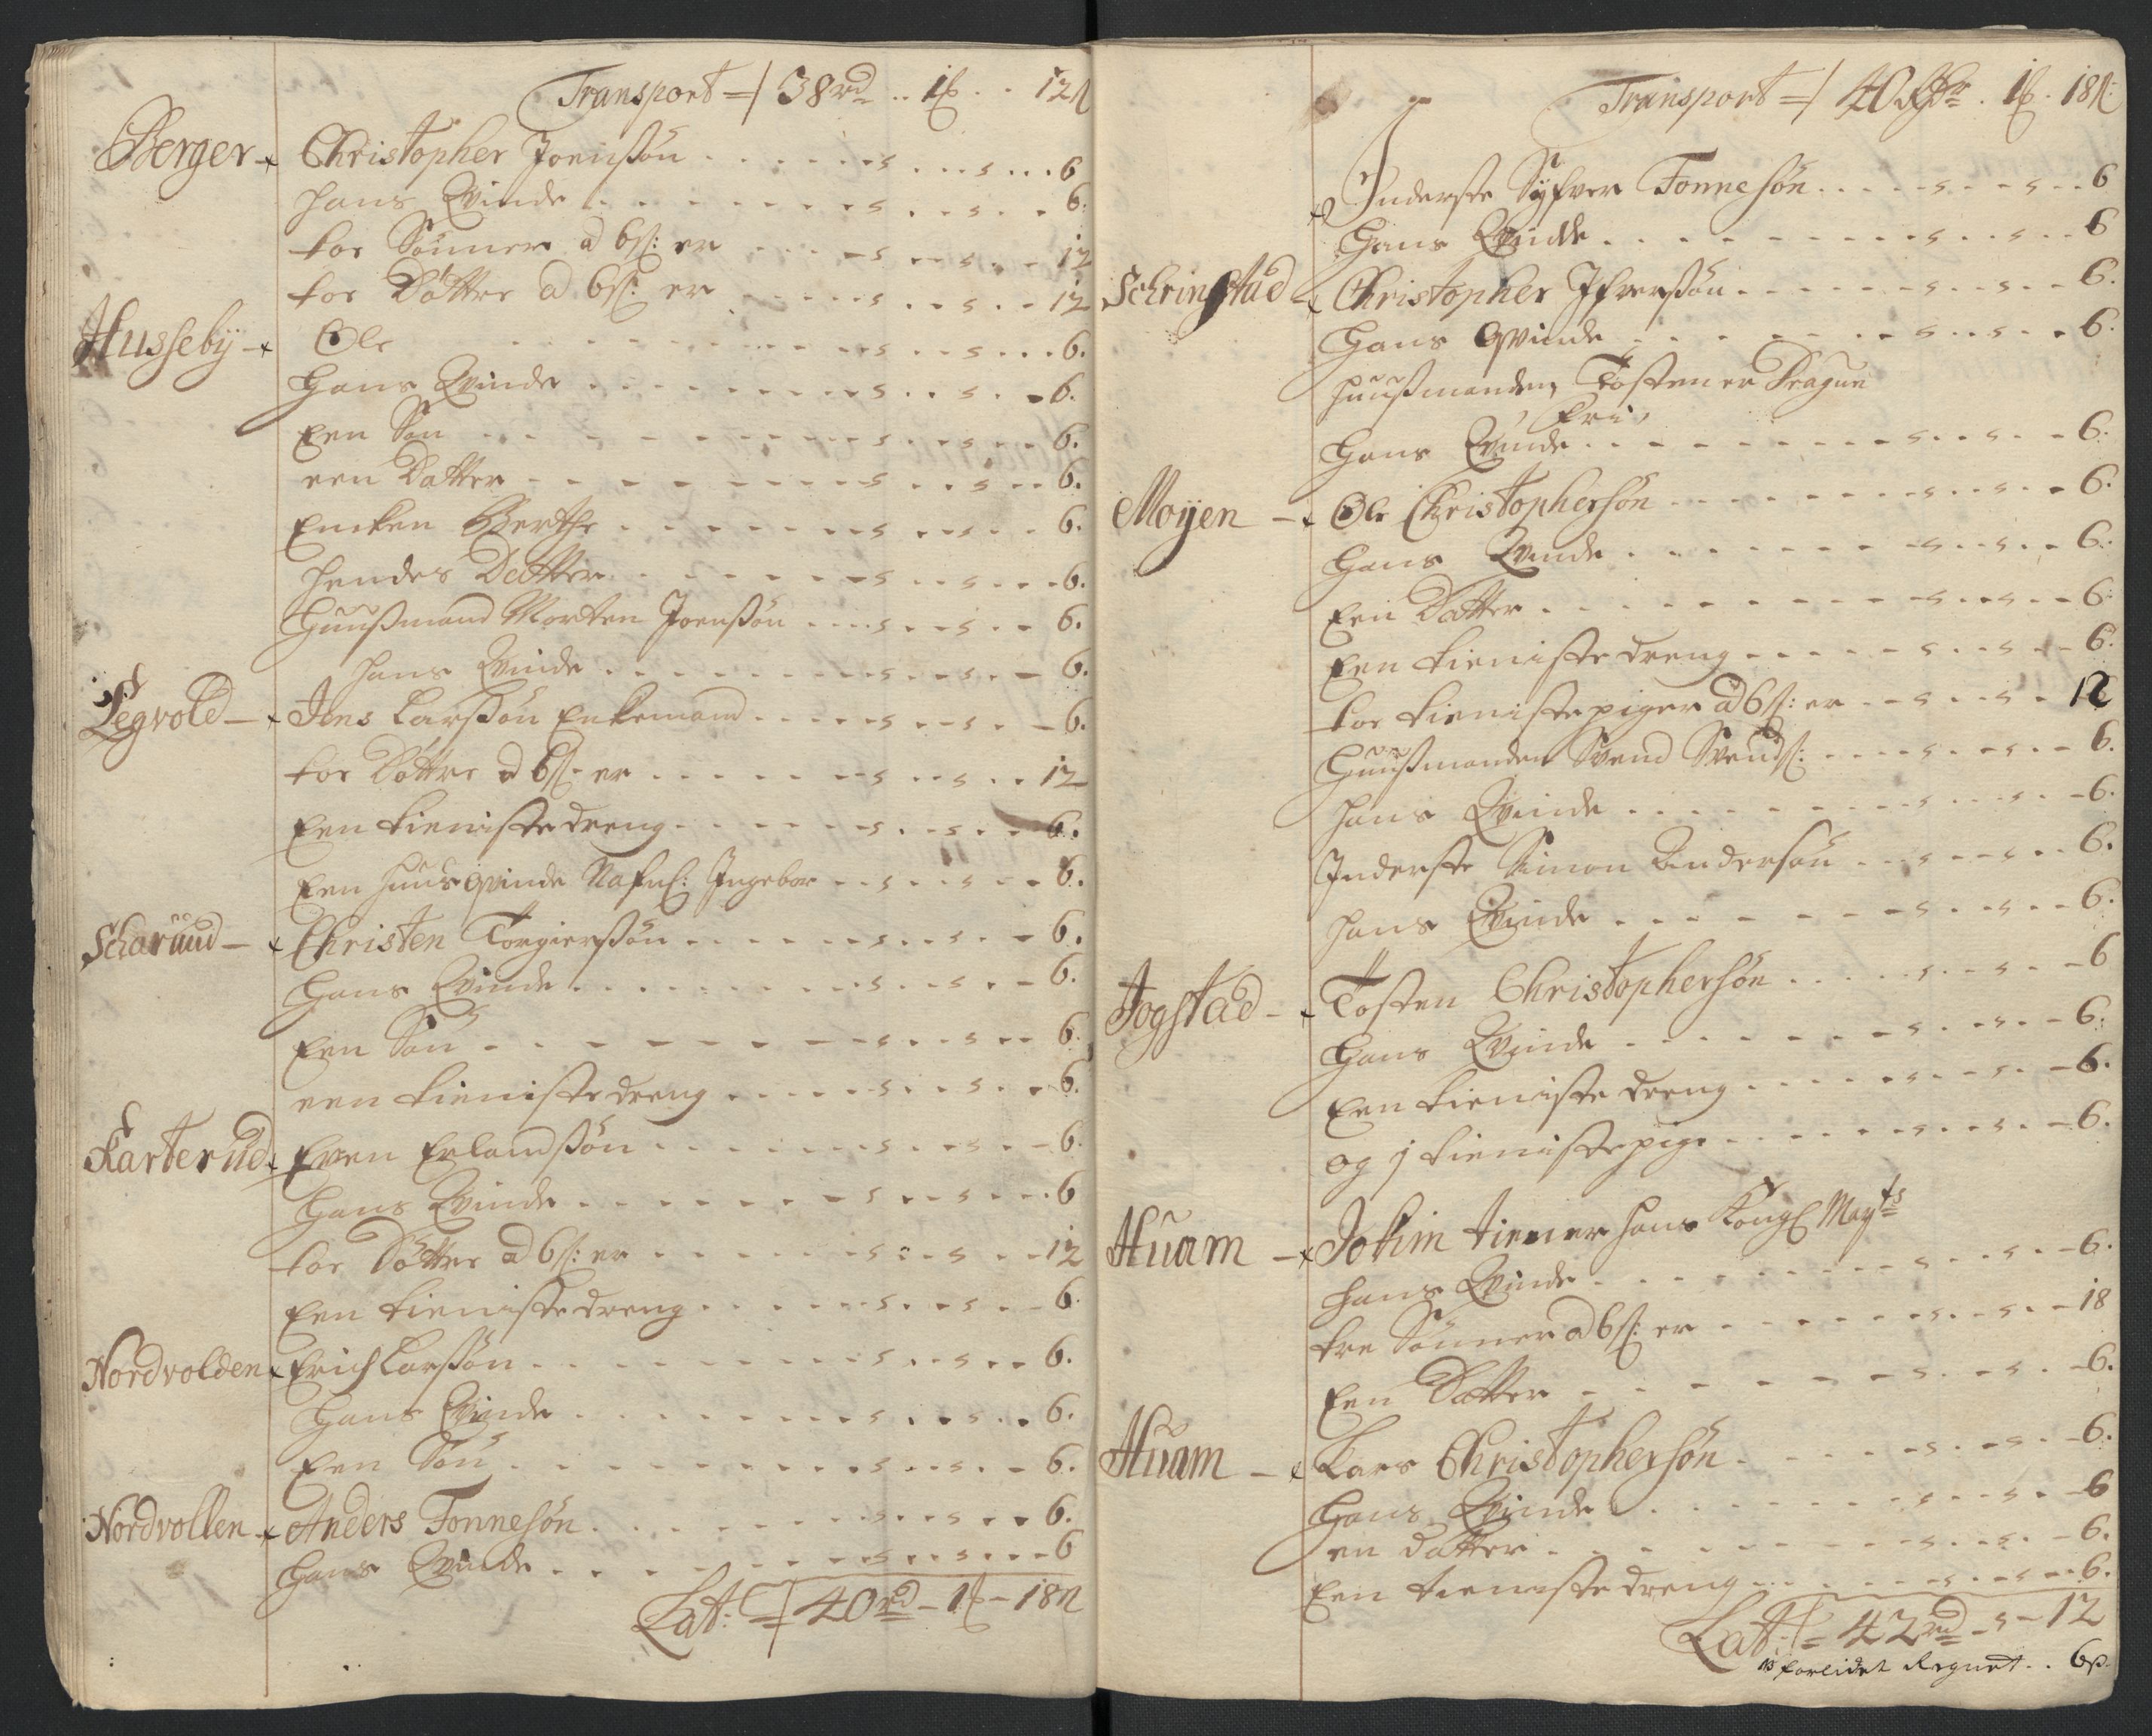 Transport = 38 rd .. 1 .. 12
Berger Christopher Joenssön . . . 6
hans Qvinde . . . 6.
toe Sönner a 6 s: er . . . 12
toe Döttre a 6 s: er . . . 12
Husseby Ole . . . 6.
Hans Qvinde . . . 6.
Een Sön . . . 6.
een Datter . . . 6.
Encken Berthe . . . 6.
hendes Datter . . . 6.
Huussmand Morten Joenssön . . . 6.
hans Qvinde . . . 6.
Legvold Jens Larssön Enkemand . . . 6.
toe Döttre a 6 s: er . . . 12
Een tieniste dreng . . . 6.
Een huus qvinde Nafnl: Ingebor . . . 6.
Scharuud Christen Torgierssön . . . 6.
Hans Qvinde . . . 6.
Een Sön . . . 6.
een tieniste dreng . . . 6.
Karterud Even Erlandssön . . . 6.
Hans Qvinde . . . 6
toe Döttre a 6 s: er . . . 12
Een tieniste dreng . . . 6.
Nordvolden Erich Larssön . . . 6.
Hans Qvinde . . . 6.
Een Sön . . . 6.
Nordvollen Anders Tonnesön . . . 6.
Hans Qvinde . . . 6
Lat: = 40 rd - 1 - 18
Transport = 40 . 1 . 18
Inderste Syfver Tonnesön . . . 6
Hans Qvinde . . . 6
Schringstad Christopher Ifverssön . . . 6.
Hans Qvinde . . . 6.
Huussmanden Tosten er Dragun
fri,
Hans Qvinde . . . 6.
Moijen Ole Christophersön . . . 6.
Hans Qvinde . . . 6.
Een Datter . . . 6.
Een tieniste dreng . . . 6.
toe tieniste piger a 6 s: er . . . 12
Huussmanden Svend Svends: . . . 6.
hans Qvinde . . . 6.
Inderste Simon Andersön . . . 6.
hans Qvinde . . . 6.
Jogstad Tosten Christophersön . . . 6
Hans Qvinde . . . 6.
Een tieniste dreng . . . 6.
og j tieniste pige . . . 6.
Huam Jokim tiener hans Kongl Mayts
hans Qvinde . . . 6.
tre Sönner a 6 s: er . . . 18
Een Datter . . . 6.
Huam Lars Christophersön . . . 6.
Hans Qvinde . . . 6
en datter . . . 6.
Een tieniste dreng . . . 6.
Lat: = 42 rd - s - 12
forlidet Regnet . . 6